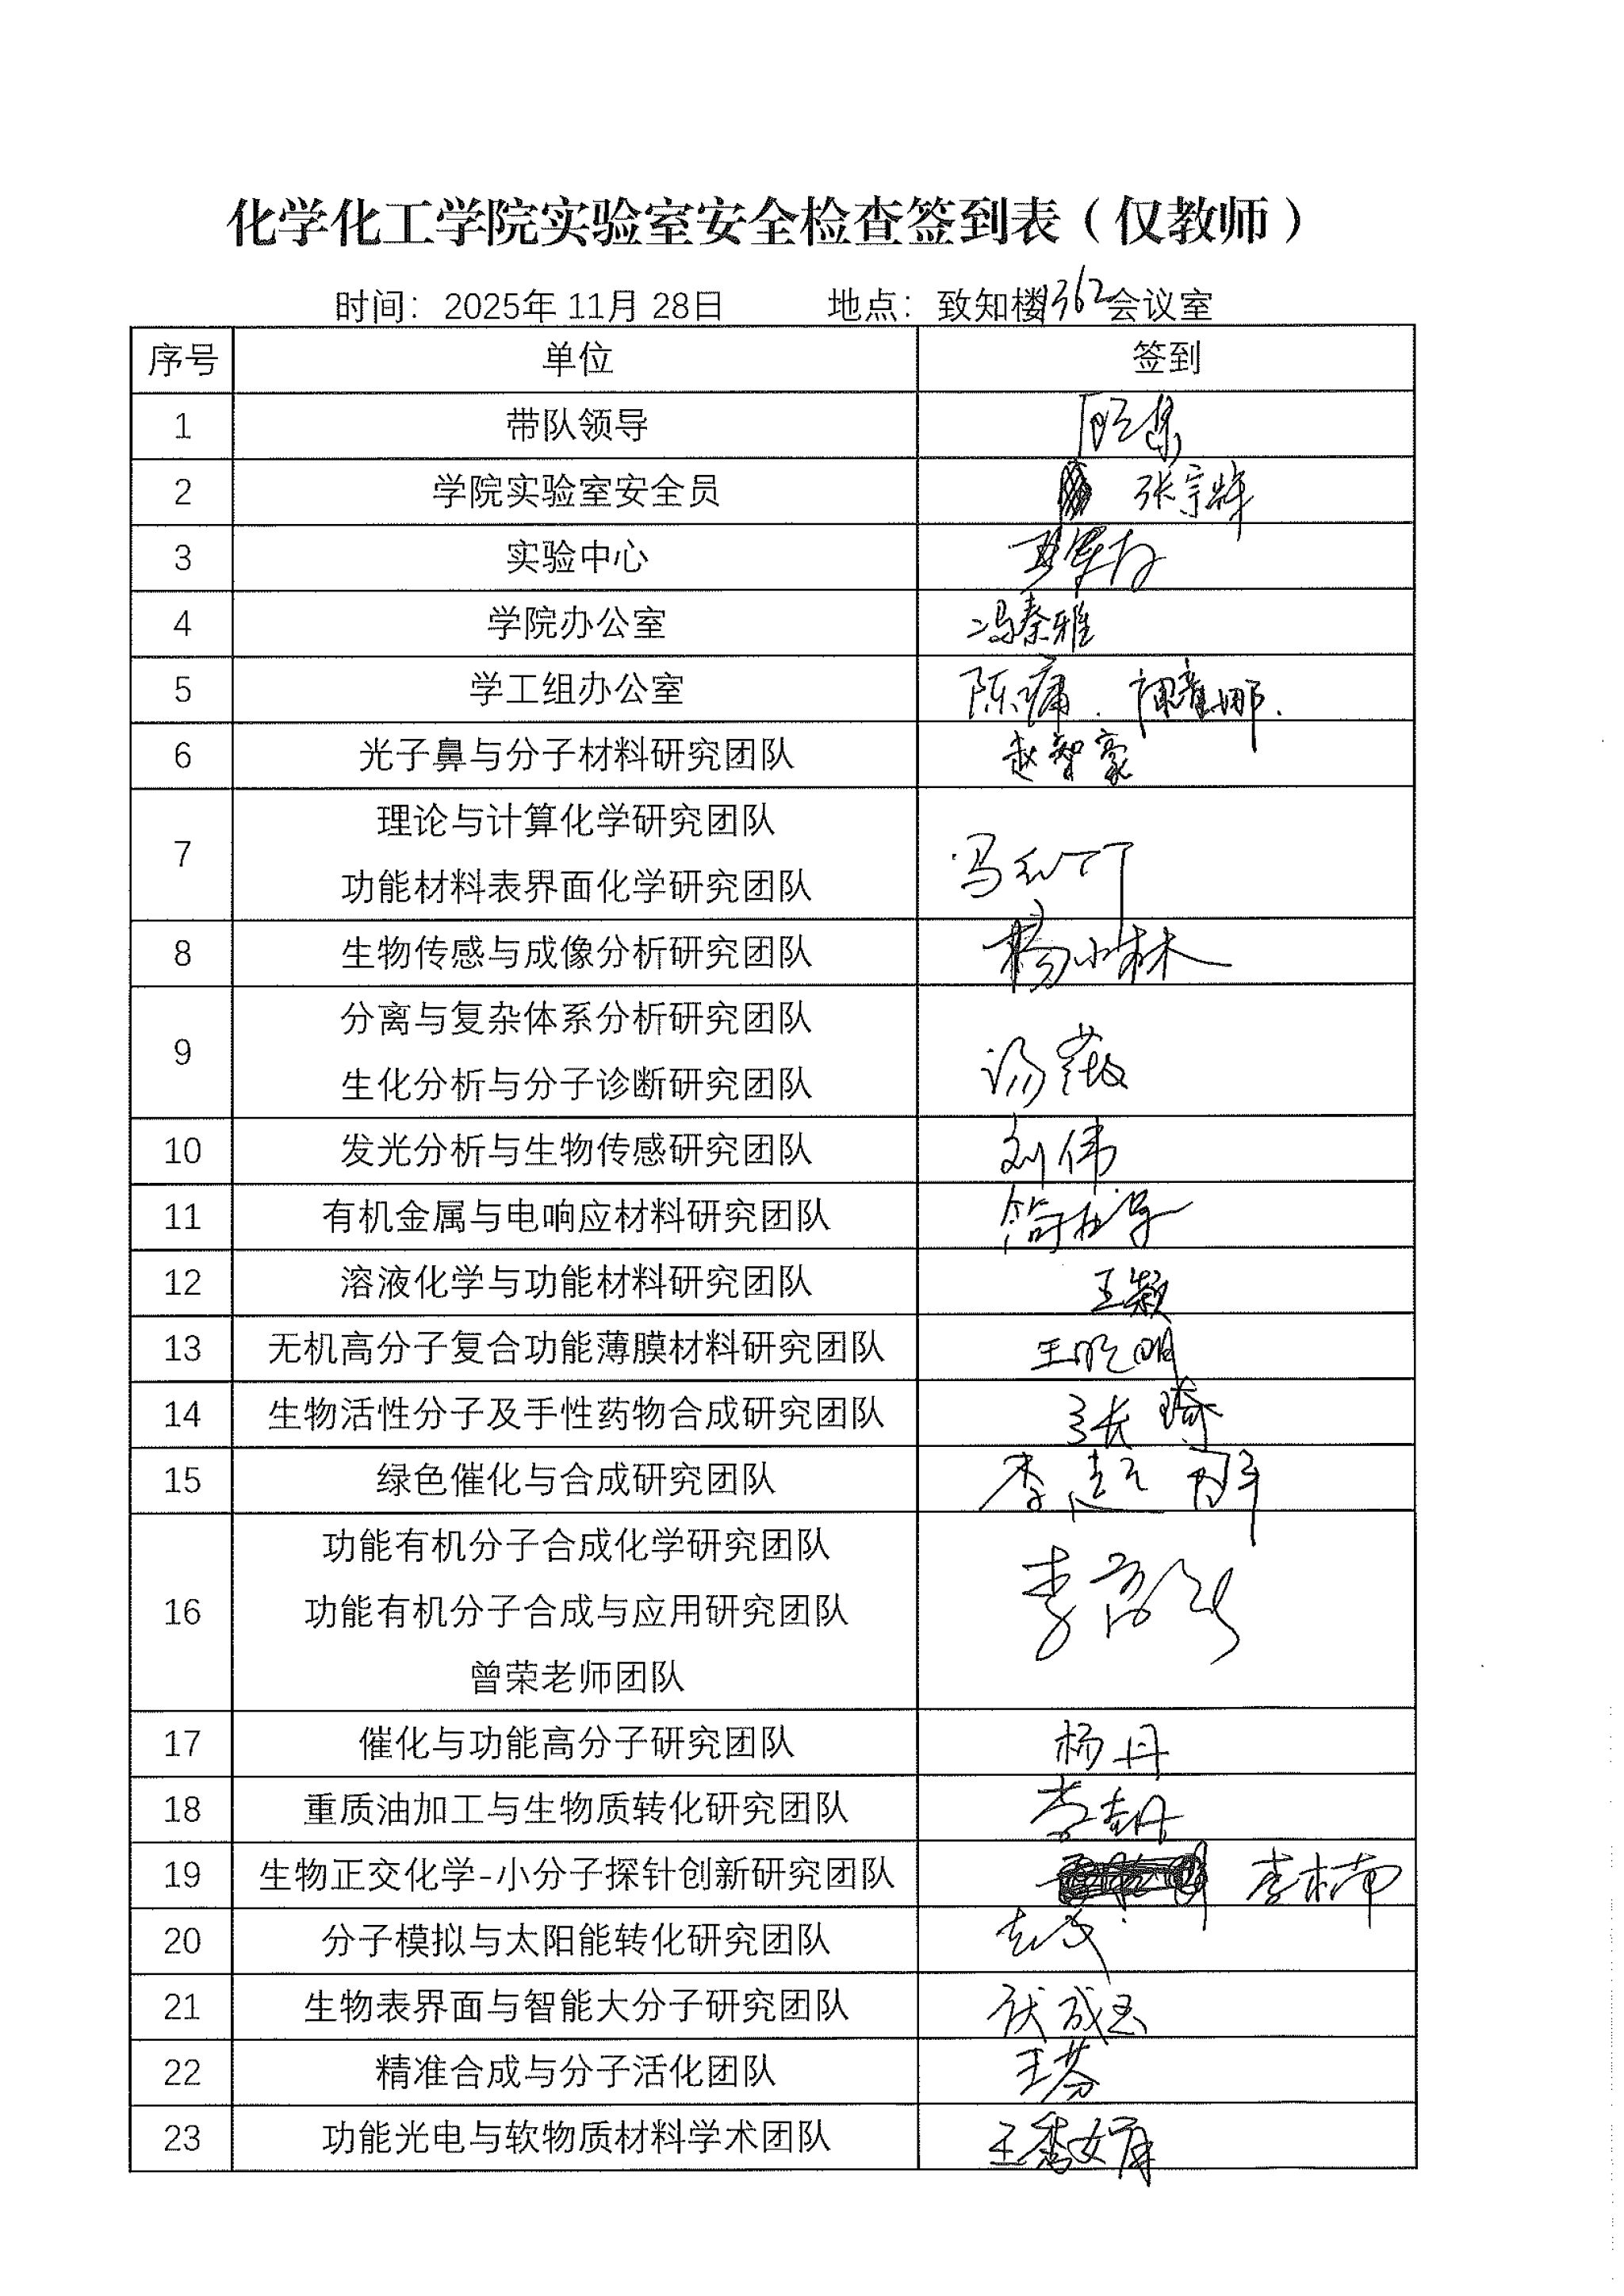 化学化工学院实验室安全检查签到表（仅教师）
时间：2025年 11月 28日 地点：致知楼1362会议室
序号 单位 签到
1 带队领导
2 学院实验室安全员 张宗烨
3 实验中心
4 学院办公室 冯秦雅
5 学工组办公室 陈
6 光子鼻与分子材料研究团队 赵智豪
7 理论与计算化学研究团队
功能材料表界面化学研究团队
8 生物传感与成像分析研究团队 杨小林
9 分离与复杂体系分析研究团队 汤薇
生化分析与分子诊断研究团队
10 发光分析与生物传感研究团队 刘伟
11 有机金属与电响应材料研究团队
12 溶液化学与功能材料研究团队 王颖
13 无机高分子复合功能薄膜材料研究团队 王明
14 生物活性分子及手性药物合成研究团队 张琦
15 绿色催化与合成研究团队 李超群
16 功能有机分子合成化学研究团队
功能有机分子合成与应用研究团队
曾荣老师团队
17 催化与功能高分子研究团队 杨丹
18 重质油加工与生物质转化研究团队
19 生物正交化学-小分子探针创新研究团队 李楠
20 分子模拟与太阳能转化研究团队
21 生物表界面与智能大分子研究团队 伏成玉
22 精准合成与分子活化团队 王芬
23 功能光电与软物质材料学术团队 王